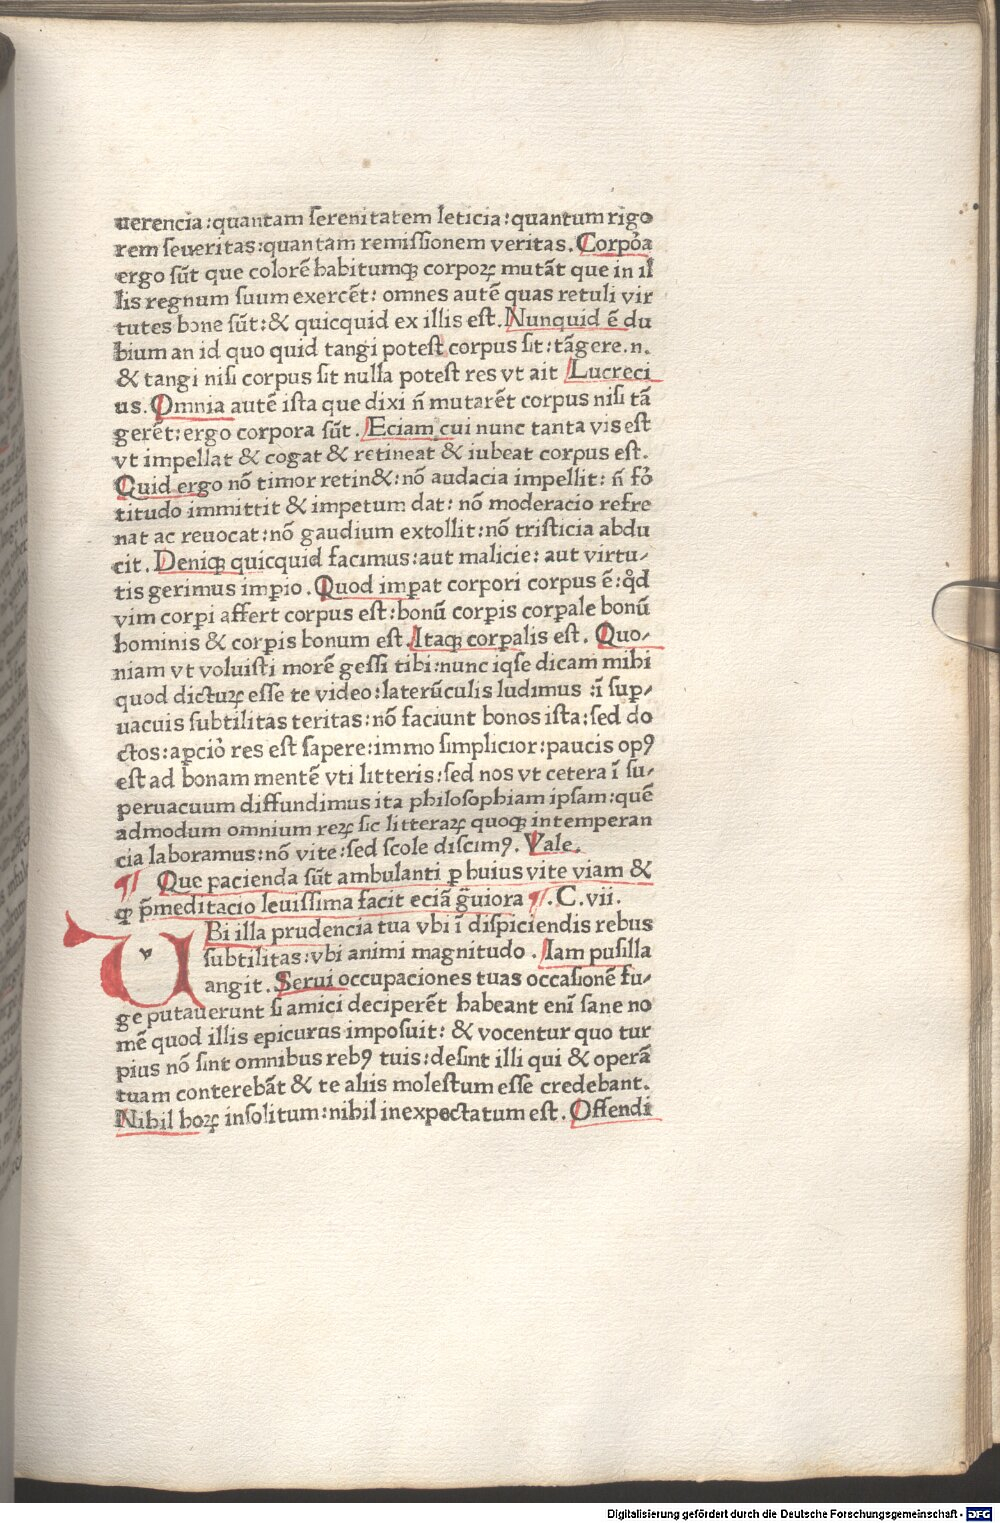 uerencia:quantam ſerenitatem leticia:quantum rigo
rem ſeueritas:quantam remiſſionem veritas. Corpoͬa
ergo ſūt que colorē habitumqꝫ corpoꝝ mutāt que in il
lis regnum ſuum exercēt: omnes autē quas retuli vir
tutes bone ſūt:& quicquid ex illis eſt. Nunquid ē du
bium an id quo quid tangi poteſt corpus ſit:tāgere.n.
& tangi niſi corpus ſit nulla poteſt res vt ait Lucreci
us. Omnia autē iſta que dixi n̄ mutarēt corpus niſi tā
gerēt:ergo corpora ſūt. Eciam cui nunc tanta vis eſt
vt impellat & cogat & retineat & iubeat corpus eſt.
Quid ergo nō timor retin&:nō audacia impellit: n̄ foͬ
titudo immittit & impetum dat: nō moderacio refre
nat ac reuocat:nō gaudium extollit:nō triſticia abdu
cit. Deniqꝫ quicquid facimus:aut malicie: aut virtu-
tis gerimus imꝑio. Quod imꝑat corpori corpus ē:qd̉
vim corꝑi affert corpus eſt:bonū corꝑis corꝑale bonū
hominis & corꝑis bonum eſt. Itaqꝫ corꝑalis eſt. Quo-
niam vt voluiſti morē geſſi tibi:nunc iqſe dicam mihi
quod dictuꝝ eſſe te video:laterūculis ludimus :ī ſuꝑ-
uacuis ſubtilitas teritas:nō faciunt bonos iſta:ſed do
ctos:aꝑcioͬ res eſt ſapere:immo ſimplicior:paucis opꝰ
eſt ad bonam mentē vti litteris:ſed nos vt cetera ī ſu-
peruacuum diffundimus ita philoſophiam ipſam:quē
admodum omnium reꝝ ſic litteraꝝ quoqꝫ intemperan
cia laboramus:nō vite:ſed ſcole diſcimꝰ. Vale.
¶ Que pacienda ſūt ambulanti ꝑ huius vite viam &
qꝫ p̄meditacio leuiſſima facit eciā g̈uiora ¶.C.vii.
VBi illa prudencia tua vbi ī diſpiciendis rebus
ſubtilitas:vbi animi magnitudo . Iam puſilla
angit. Serui occupaciones tuas occaſionē fu-
ge putauerunt ſi amici deciperēt habeant enī ſane no
mē quod illis epicurus impoſuit: & vocentur quo tur
pius nō ſint omnibus rebꝰ tuis:deſint illi qui & operā
tuam conterebāt & te aliis moleſtum eſſe credebant.
Nihil hoꝝ inſolitum:nihil inexpectatum eſt. Offendi
Digitalisierung gefördert durch die Deutsche Forschungsgemeinschaft - DFG